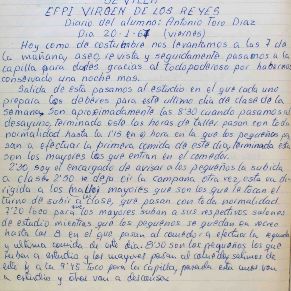 SEVILLA
EFPI VIRGEN DE LOS REYES
Diario del alumno: Antonio Toro Diaz
Dia 20-1-67 (viernes)
Hoy como de costumbre nos levantamos a las 7 de
la mañana, aseo, revista y seguidamente pasamos a la
capilla para darles gracias al todopoderoso por habernos
conservado una noche mas.
Salida de esta pasamos al estudio en el que cada uno
prepara los deberes para este ultimo dia de clase de la
semana. Son aproximadamente las 8'30 cuando pasamos al
desayuno, terminado este las horas de taller pasan con toda
normalidad hasta la 1'15 en hora en la que los pequeños pa
san a efectuar la primera comida de este dia, terminada esta
son los mayores los que entran en el comedor.
2'30 soy el encargado de avisar a los pequeños la subida
a clase 2'50 le doy a la campana otra vez, esta va di-
rigida a los mayores que son los que le tocan el
turno de subir a clase, que pasan con toda normalidad.
7'20 toco para que los mayores suban a sus respectivos salones
de estudio mientras que los pequeños se quedan en recreo
hasta las 8 en el que pasan al comedor a efectuar la segunda
y ultima comida de este dia. 8'30 son los pequeños los que
suban a estudio y los mayores pasan al comedor, salimos de
este y a la 9'45 toco para la capilla, pasada esta unos van
a estudio y otros van a descansar.